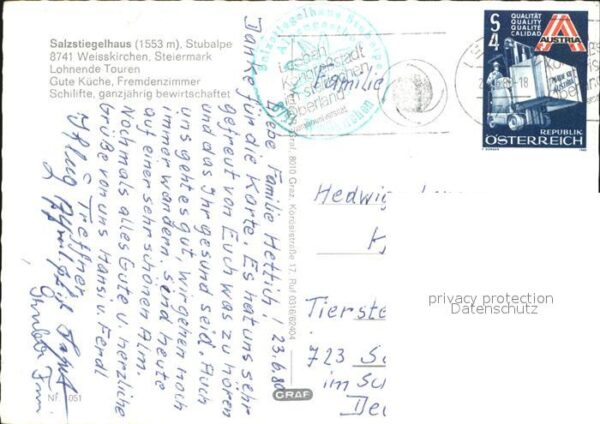 Salzstiegelhaus (1553 m), Stubalpe
8741 Weisskirchen, Steiermark
Lohnende Touren
Gute Küche, Fremdenzimmer
Schilifte, ganzjährig bewirtschaftet
23.6.80
Liebe Familie Hettich!
Danke für die Karte. Es hat uns sehr
gefreut von Euch was zu hören
und das Ihr gesund seid. Auch
uns geht es gut, wir gehen noch
immer wandern. Send heute
auf einer sehr schönen Alm.
Nochmals alles Gute u. herzliche
Grüße von uns Hansi u. Ferdl
Treffner
Nf. 1051
8010 Graz, Korösistraße 17, Ruf 0316/62404
GRAF
Leoben
Kongressstadt
im steirischen
Oberland
QUALITÄT
QUALITY
QUALITE
CALIDAD
AUSTRIA
S 4
MADE IN
AUSTRIA
REPUBLIK
ÖSTERREICH
Familie
Hedwig
Tierste
723
im Sc
privacy protection
Datenschutz